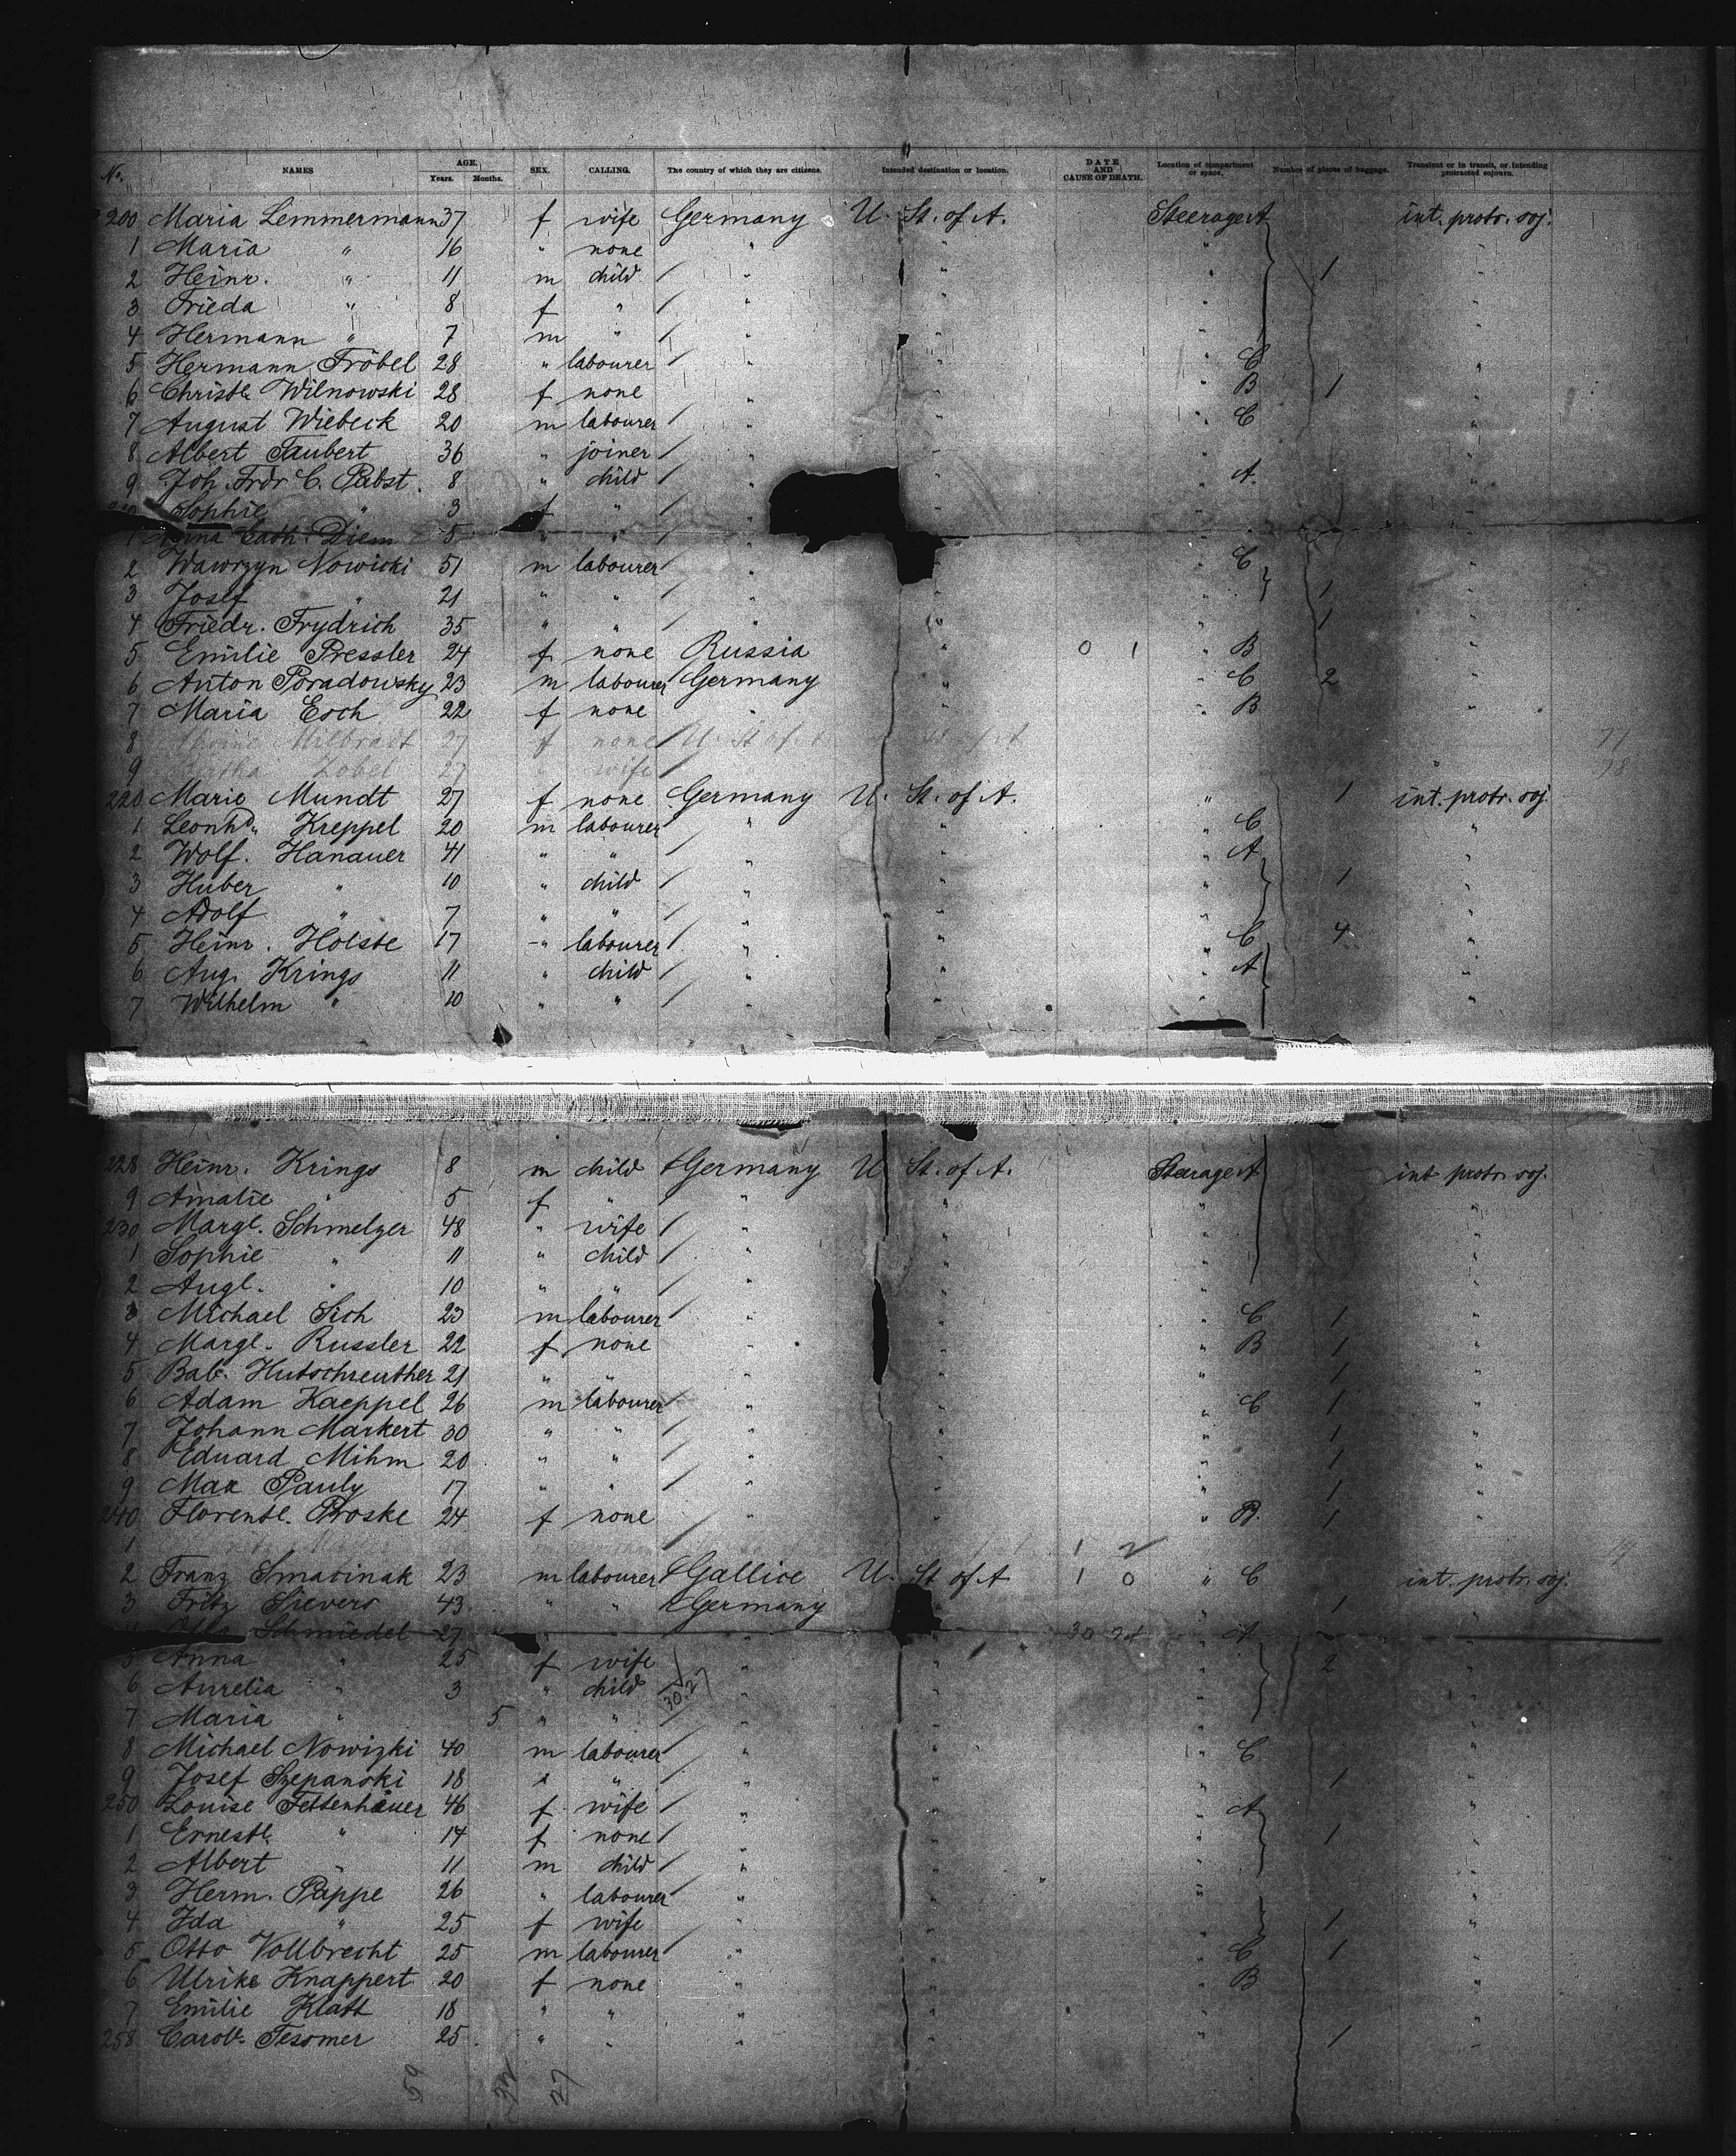 No. NAMES AGE. Years. Months. SEX. CALLING. The country of which they are citizens. Intended destination or location. DATE AND CAUSE OF DEATH. Location of compartment or space. Number of pieces of baggage. Transient or in transit, or intending protracted sojourn.
200 Maria Lemmermann 37 f wife Germany U. St. of A. Steerage A int. protr. soj.
1 Maria " 16 " none " " " "
2 Heinr. " 11 m child / " " " 1 "
3 Frieda " 8 f " / " " " "
4 Hermann " 7 m " / " " " "
5 Hermann Fröbel 28 " labourer / " " " C "
6 Christe Wilnowski 28 f none " " " B 1 "
7 August Wiebeck 20 m labourer / " " " C "
8 Albert Taubert 36 " joiner / " " " "
9 Joh. Frdr C. Pabst 8 " child / " " " A "
Sophie " 3 f " / " "
1 Cath. Diem 5 " " / " "
2 Wawrzyn Nowicki 51 m labourer / " " " C "
3 Josef " 21 " " / " " " 1 "
4 Friedr. Frydrich 35 " " / " " " 1 "
5 Emilie Pressler 24 f none Russia " 0 1 " B "
6 Anton Poradowsky 23 m labourer Germany " " C 2 "
7 Maria Esch 22 f none " " " B "
8 Milbradt 27 f none U. St. of A. 77
9 Zobel 27 " wife / " 78
220 Marie Mundt 27 f none Germany U. St. of A. " 1 int. protr. soj.
1 Leonhd. Kreppel 20 m labourer / " " " C "
2 Wolf. Hanauer 41 " " / " " " A "
3 Huber " 10 " child / " " " 1 "
4 Adolf " 7 " " / " " " "
5 Heinr. Holste 17 " labourer / " " " C 4 "
6 Aug. Krings 11 " child / " " " A "
7 Wilhelm " 10 " " / " " "
228 Heinr. Krings 8 m child Germany U. St. of A. Steerage A int protr. soj.
9 Amalie " 5 f " " " " "
230 Margt. Schmelzer 48 " wife / " " " "
1 Sophie " 11 " child / " " " "
2 Augt. " 10 " " / " " " "
3 Michael Sich 23 m labourer / " " " C 1 "
4 Margt. Russler 22 f none " " " B 1 "
5 Bab. Hutschreuther 21 " " " " " 1 "
6 Adam Kaeppel 26 m labourer / " " " C 1 "
7 Johann Markert 30 " " / " " " 1 "
8 Eduard Mihm 20 " " / " " " 1 "
9 Max Pauly 17 " " / " " " 1 "
240 Florentl. Proske 24 f none / " " " B. 1 "
1 1 2
2 Franz Smacinak 23 m labourer Gallice U. St of A 1 0 " C int. protr. soj.
3 Fritz Sievers 43 " " Germany " 1 "
Schmiedel 27 " " " " 30 " A "
5 Anna " 25 f wife " " " 2 "
6 Aurelia " 3 " child 30.27 " " " "
7 Maria " 5 " " / " " " "
8 Michael Nowizki 40 m labourer / " " " C "
9 Josef Szepanski 18 " " / " " " 1 "
250 Louise Fettenhäuer 46 f wife / " " " A "
1 Ernestl. " 14 f none / " " " 1 "
2 Albert " 11 m child / " " " "
3 Herm. Pappe 26 " labourer / " " " "
4 Ida " 25 f wife " " " 1 "
5 Otto Vollbrecht 25 m labourer / " " " C 1 "
6 Ulrike Knappert 20 f none " " " B "
7 Emilie Klatt 18 " " " " " "
258 Carol. Tessmer 25 " " " " " 1 "
59 32 27